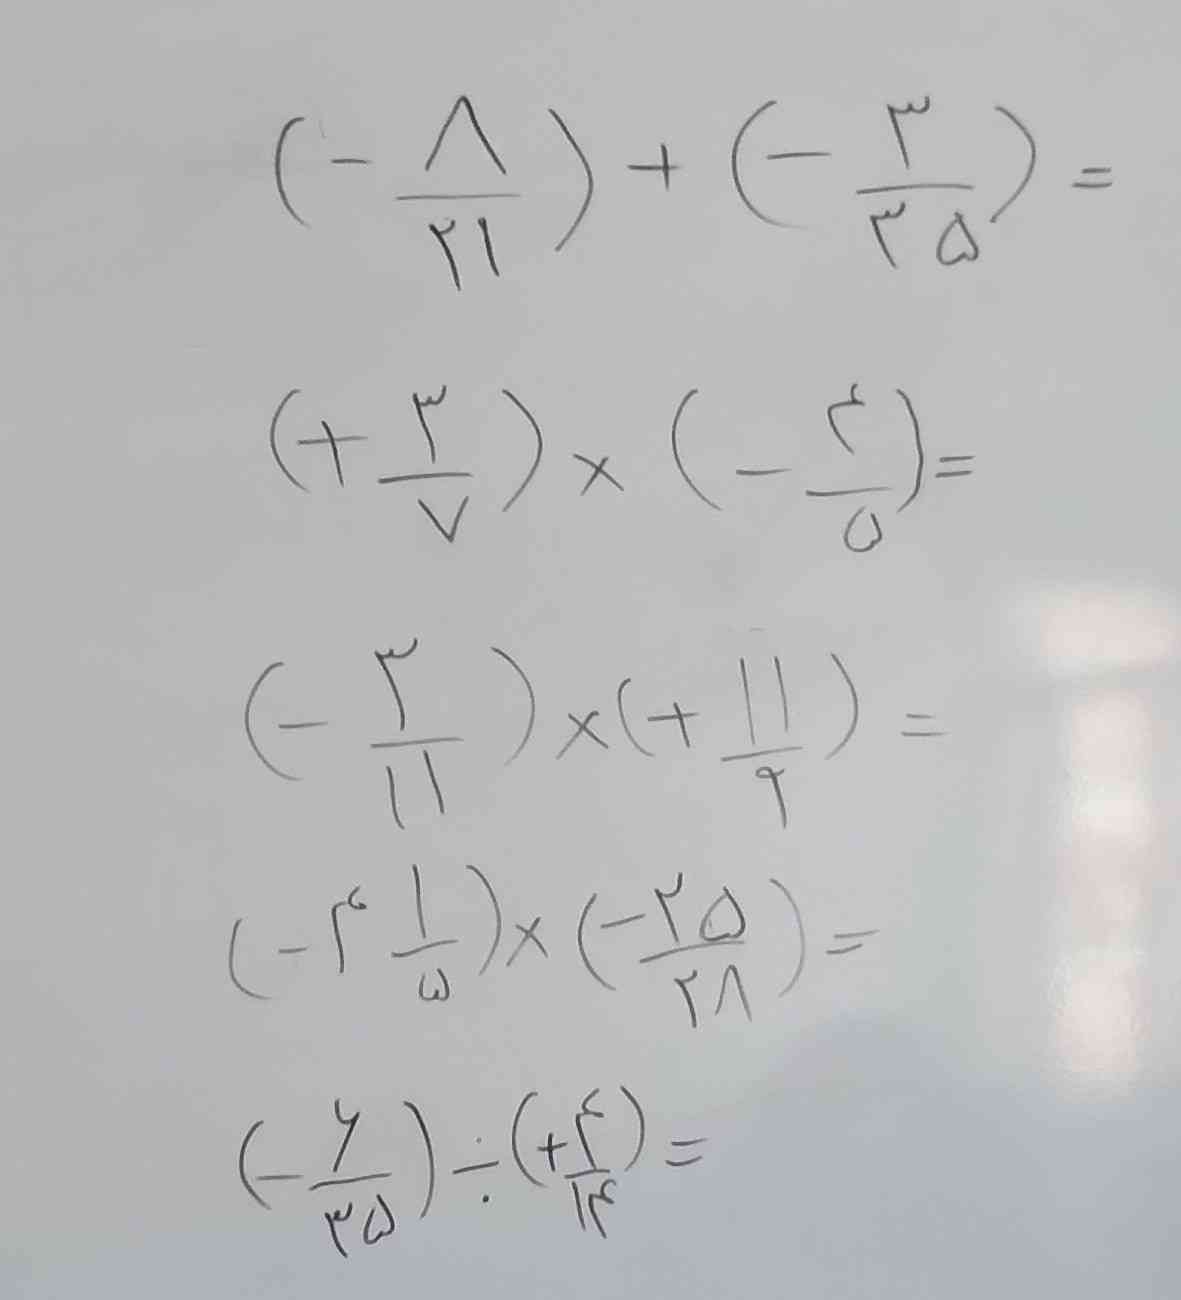 (-۸/۲۱) + (-۳/۳۵) =
(+۳/۷) × (-۴/۵) =
(-۳/۱۱) × (+۱۱/۹) =
(-۴ ۱/۵) × (-۲۵/۲۸) =
(-۶/۳۵) ÷ (+۴/۱۴) =